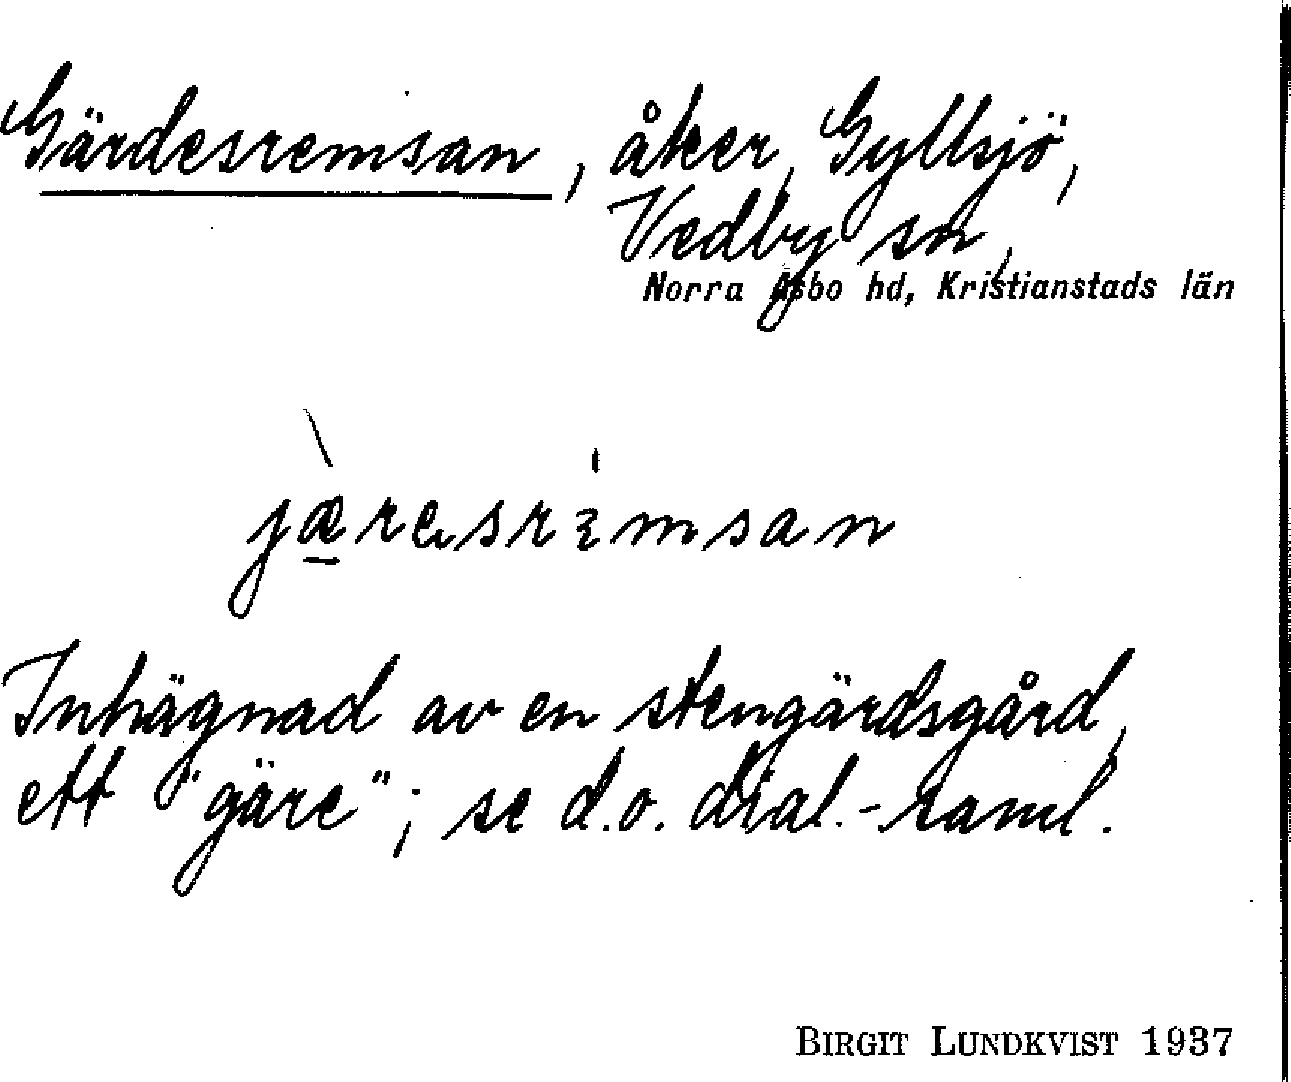 Gärdesremsan, åker, Gyllsjö,
Vedby sn,
Norra Åsbo hd, Kristianstads län
jæ̀resrimsan
Inhägnad av en stengärdsgård,
ett "gäre"; se d.o. dial.-saml.
BIRGIT LUNDKVIST 1937